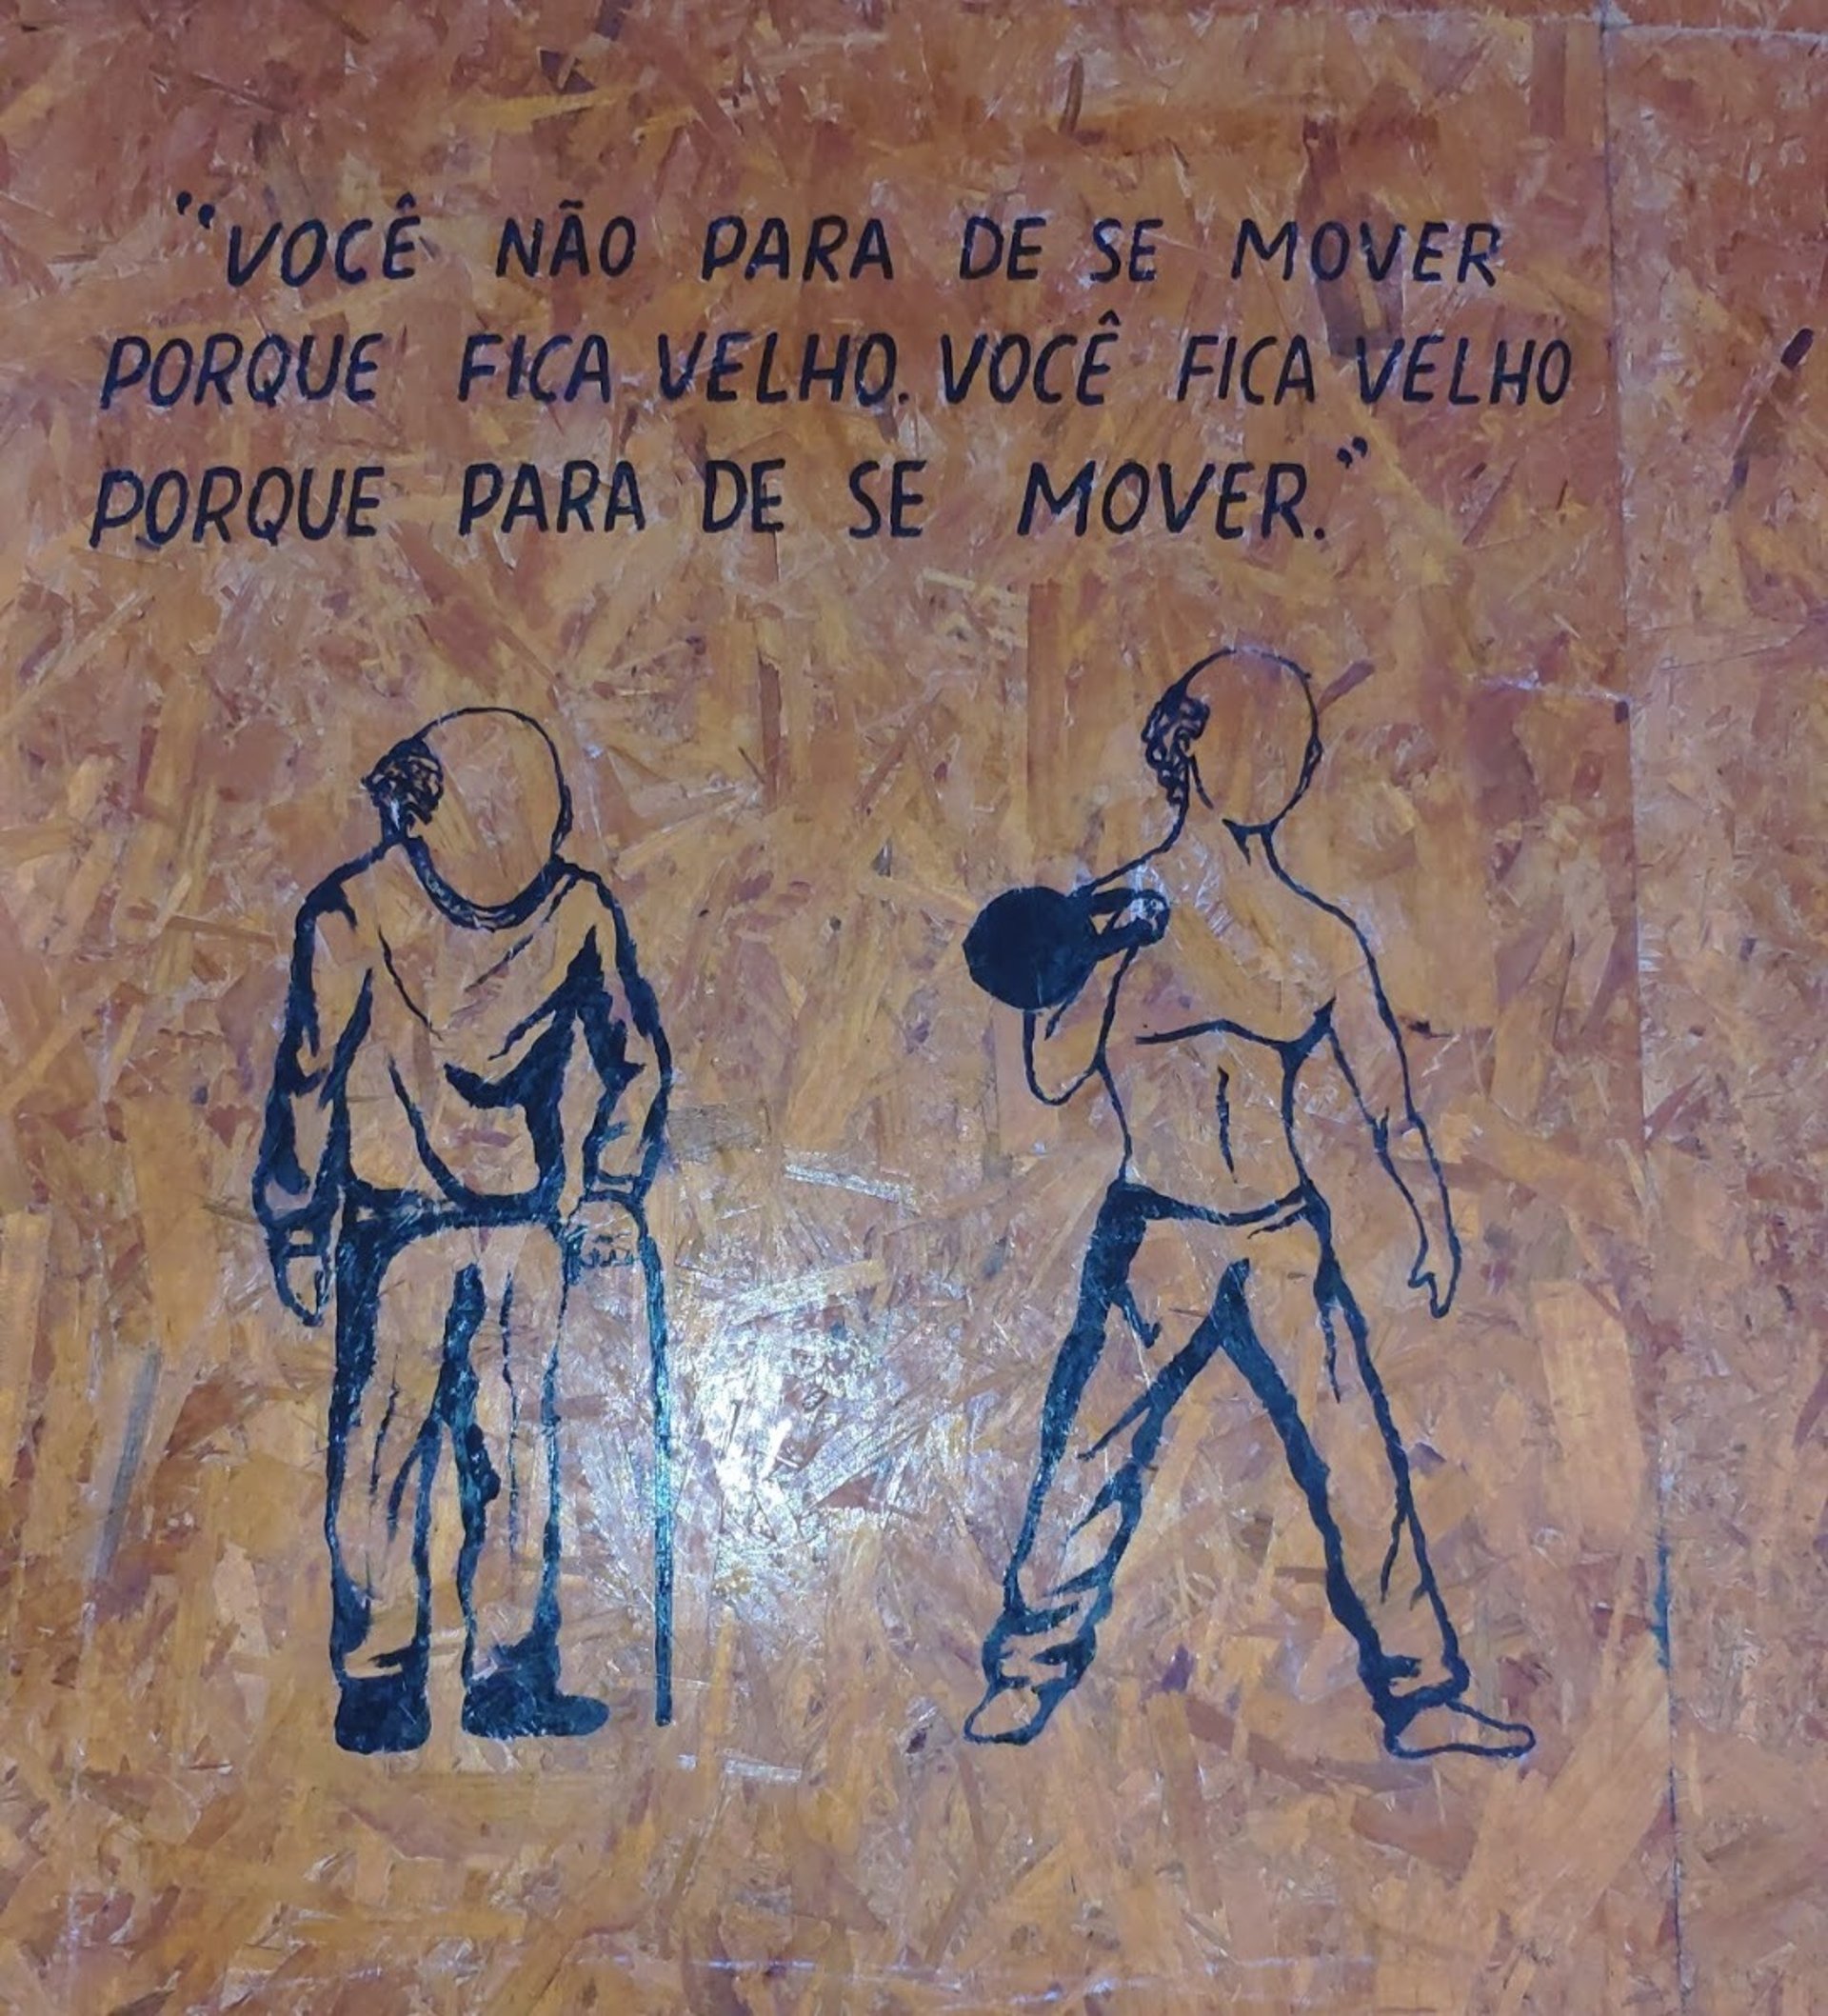 "VOCÊ NÃO PARA DE SE MOVER
PORQUE FICA VELHO. VOCÊ FICA VELHO
PORQUE PARA DE SE MOVER."